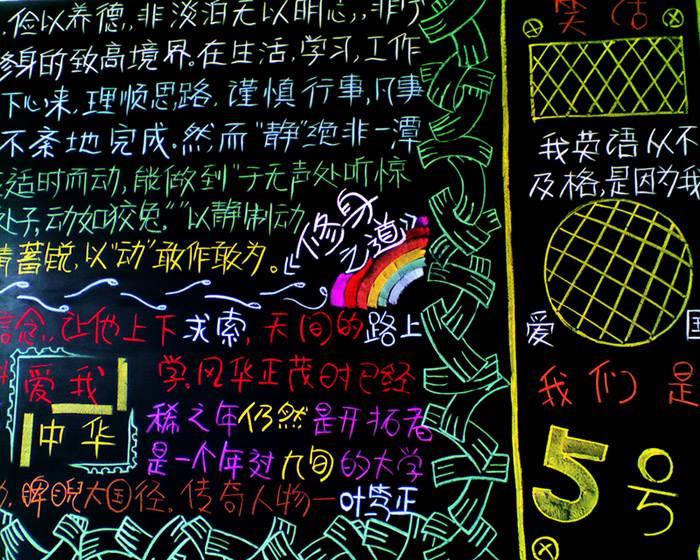 俭以养德,非淡泊无以明心,非宁
修身的致高境界。在生活,学习,工作
下心来,理顺思路,谨慎行事,凡事
不紊地完成。然而"静"绝非一潭
适时而动,能做到"于无声处听惊
处子,动如狡兔。""以静制动
精蓄锐,以"动"敢作敢为。
《修身之道》
信念,让他上下求索,天间的路上
学,风华正茂时已经
稀之年仍然是开拓者
是一个年过九旬的大学
睥睨大国径,传奇人物一叶笃正
爱我
中华
笑话
我英语从不
及格,是因为我
爱 国
我们是
5